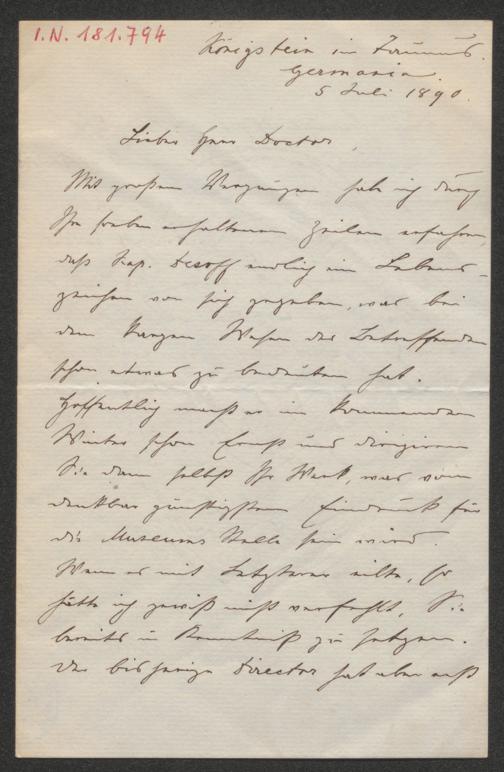 I.N. 181.794
Königstein im Taunus.
Germania.
5 Juli 1890.
Lieber Herr Doctor,
Mit großem Vergnügen habe ich durch
Ihre soeben erhaltenen Zeilen erfahren,
daß Kap. Dessoff endlich ein Lebens-
zeichen von sich gegeben, was bei
dem kargen Wesen des Betreffenden
schon etwas zu bedeuten hat.
Hoffentlich macht er im kommenden
Winter schon Ernst und dirigiren
Sie dann selbst Ihr Werk, was vom
denkbar günstigsten Eindruck für
die Museums Stelle sein wird.
Wenn es mit Letzterer eilte, so
hätte ich gewiß nicht verfehlt, Sie
bereits in Kenntniß zu setzen.
Der bisherige Director hat aber erst